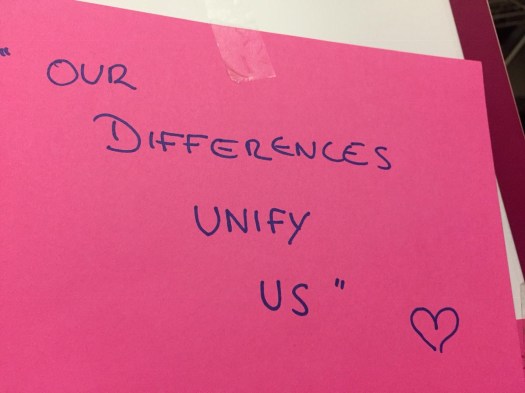 " OUR
DIFFERENCES
UNIFY
US "